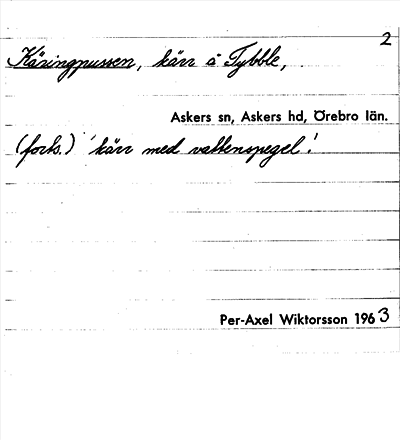 2
Käringpussen, kärr å Tybble,
Askers sn, Askers hd, Örebro län.
(forts.) 'kärr med vattenspegel'.
Per-Axel Wiktorsson 1963